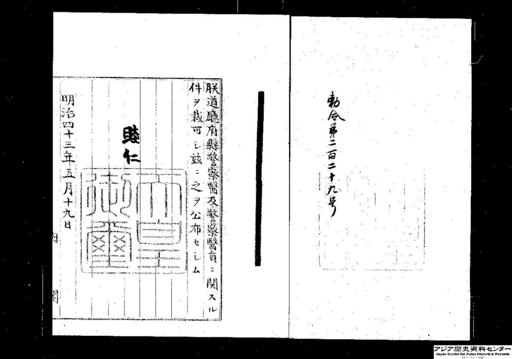 勅令第二百二十九号
朕道廳府縣警察醫及警察醫員ニ関スル
件ヲ裁可シ茲ニ之ヲ公布セシム
睦仁
天皇
御璽
明治四十三年五月十九日
内閣
アジア歴史資料センター
Japan Center for Asian Historical Records